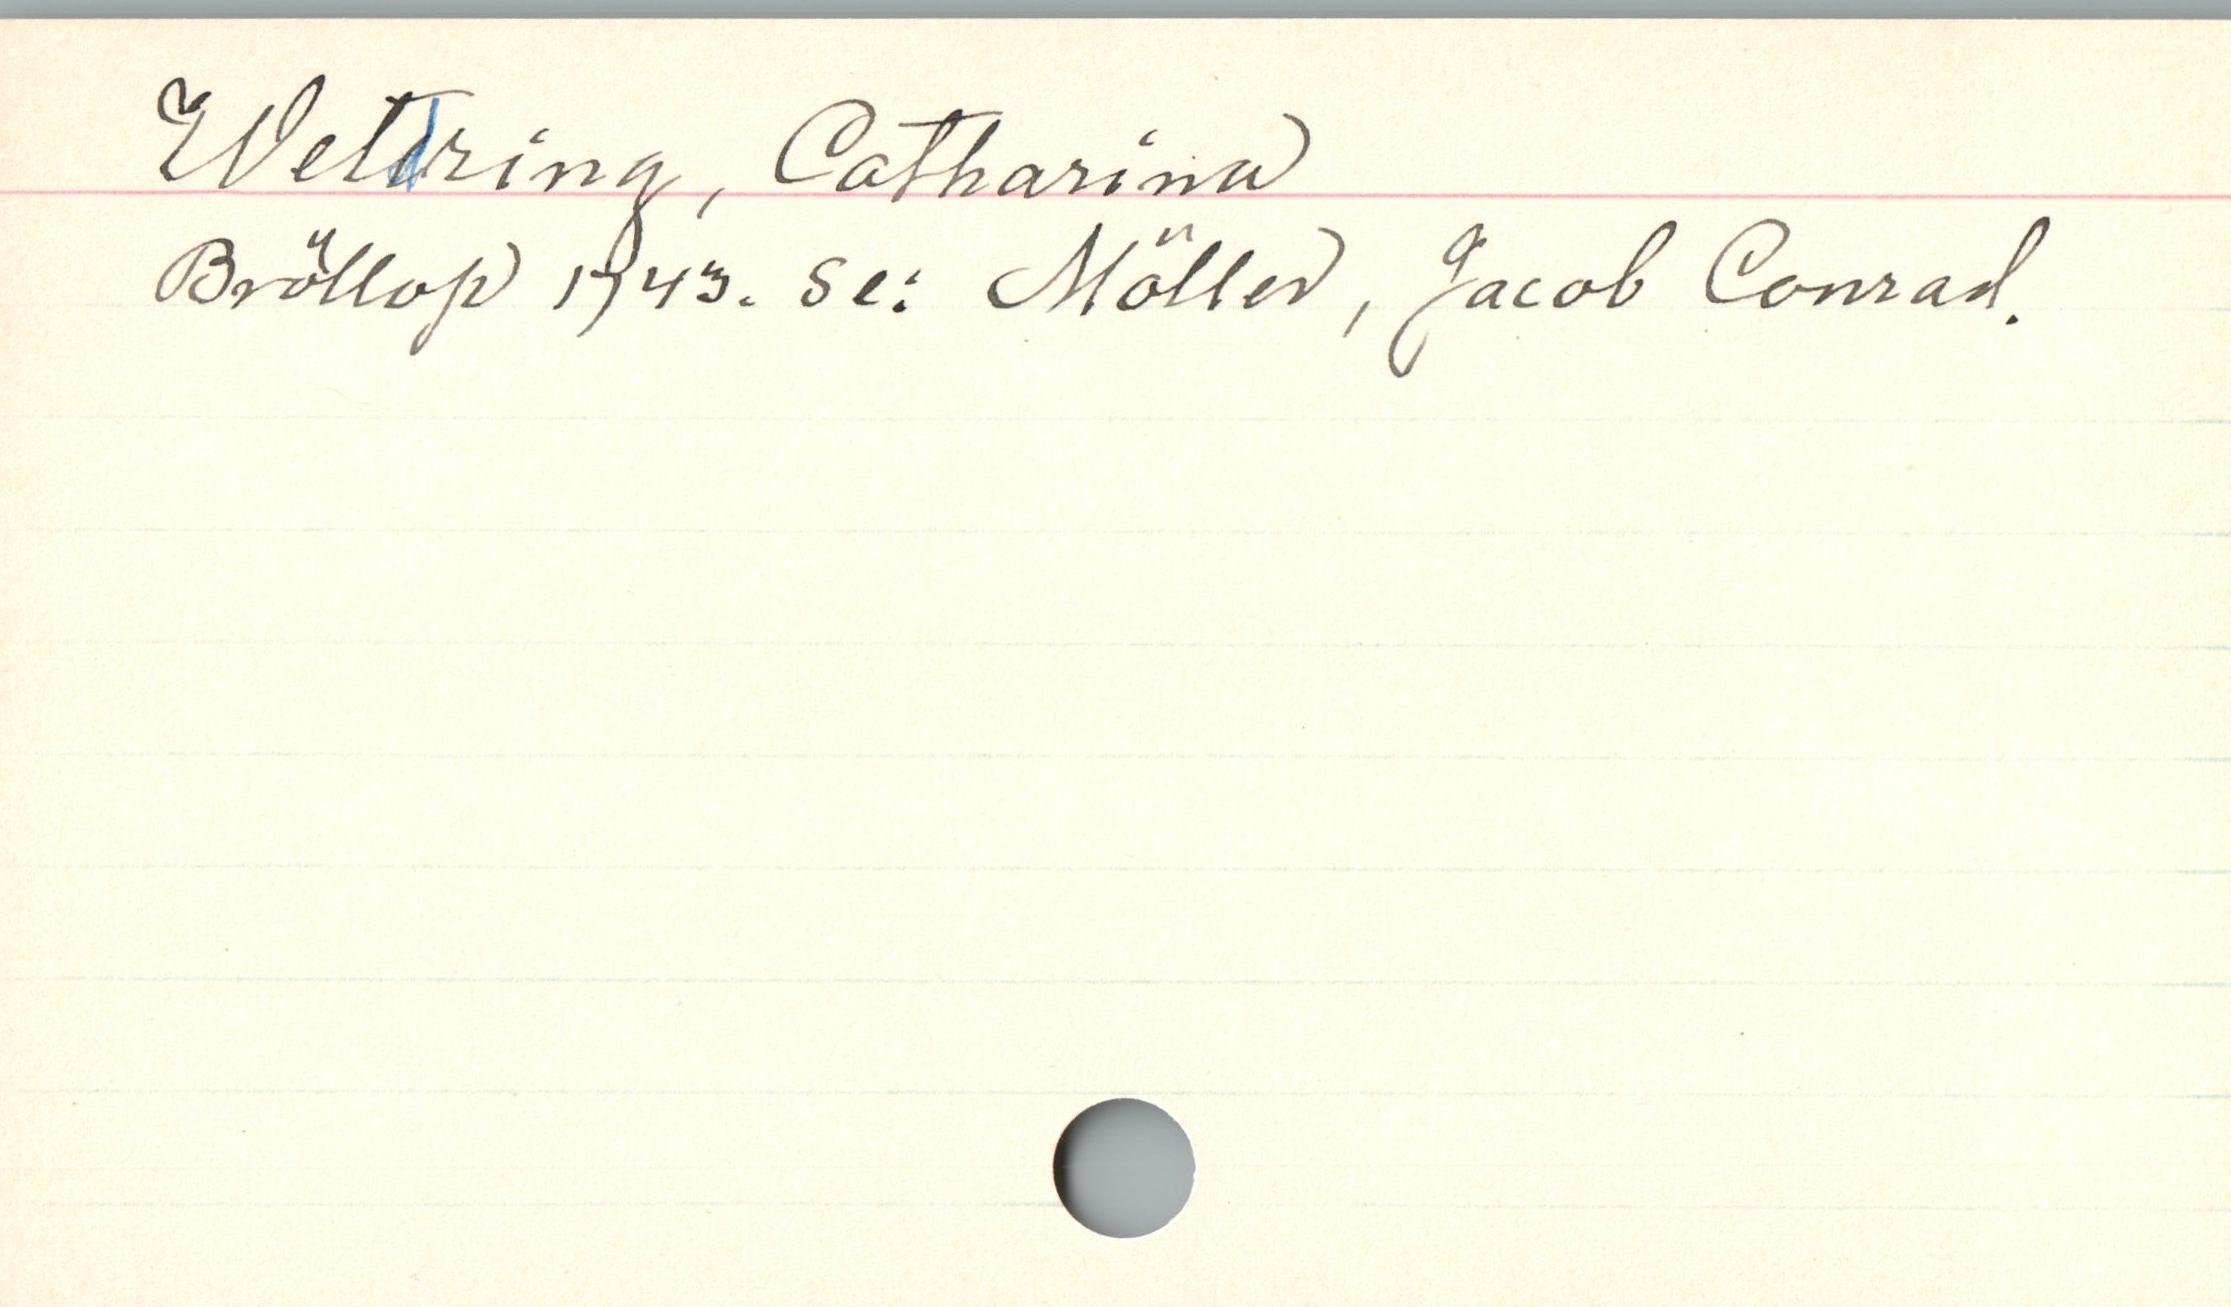 Wetdring, Catharina
Bröllop 1743. Se: Möller, Jacob Conrad.